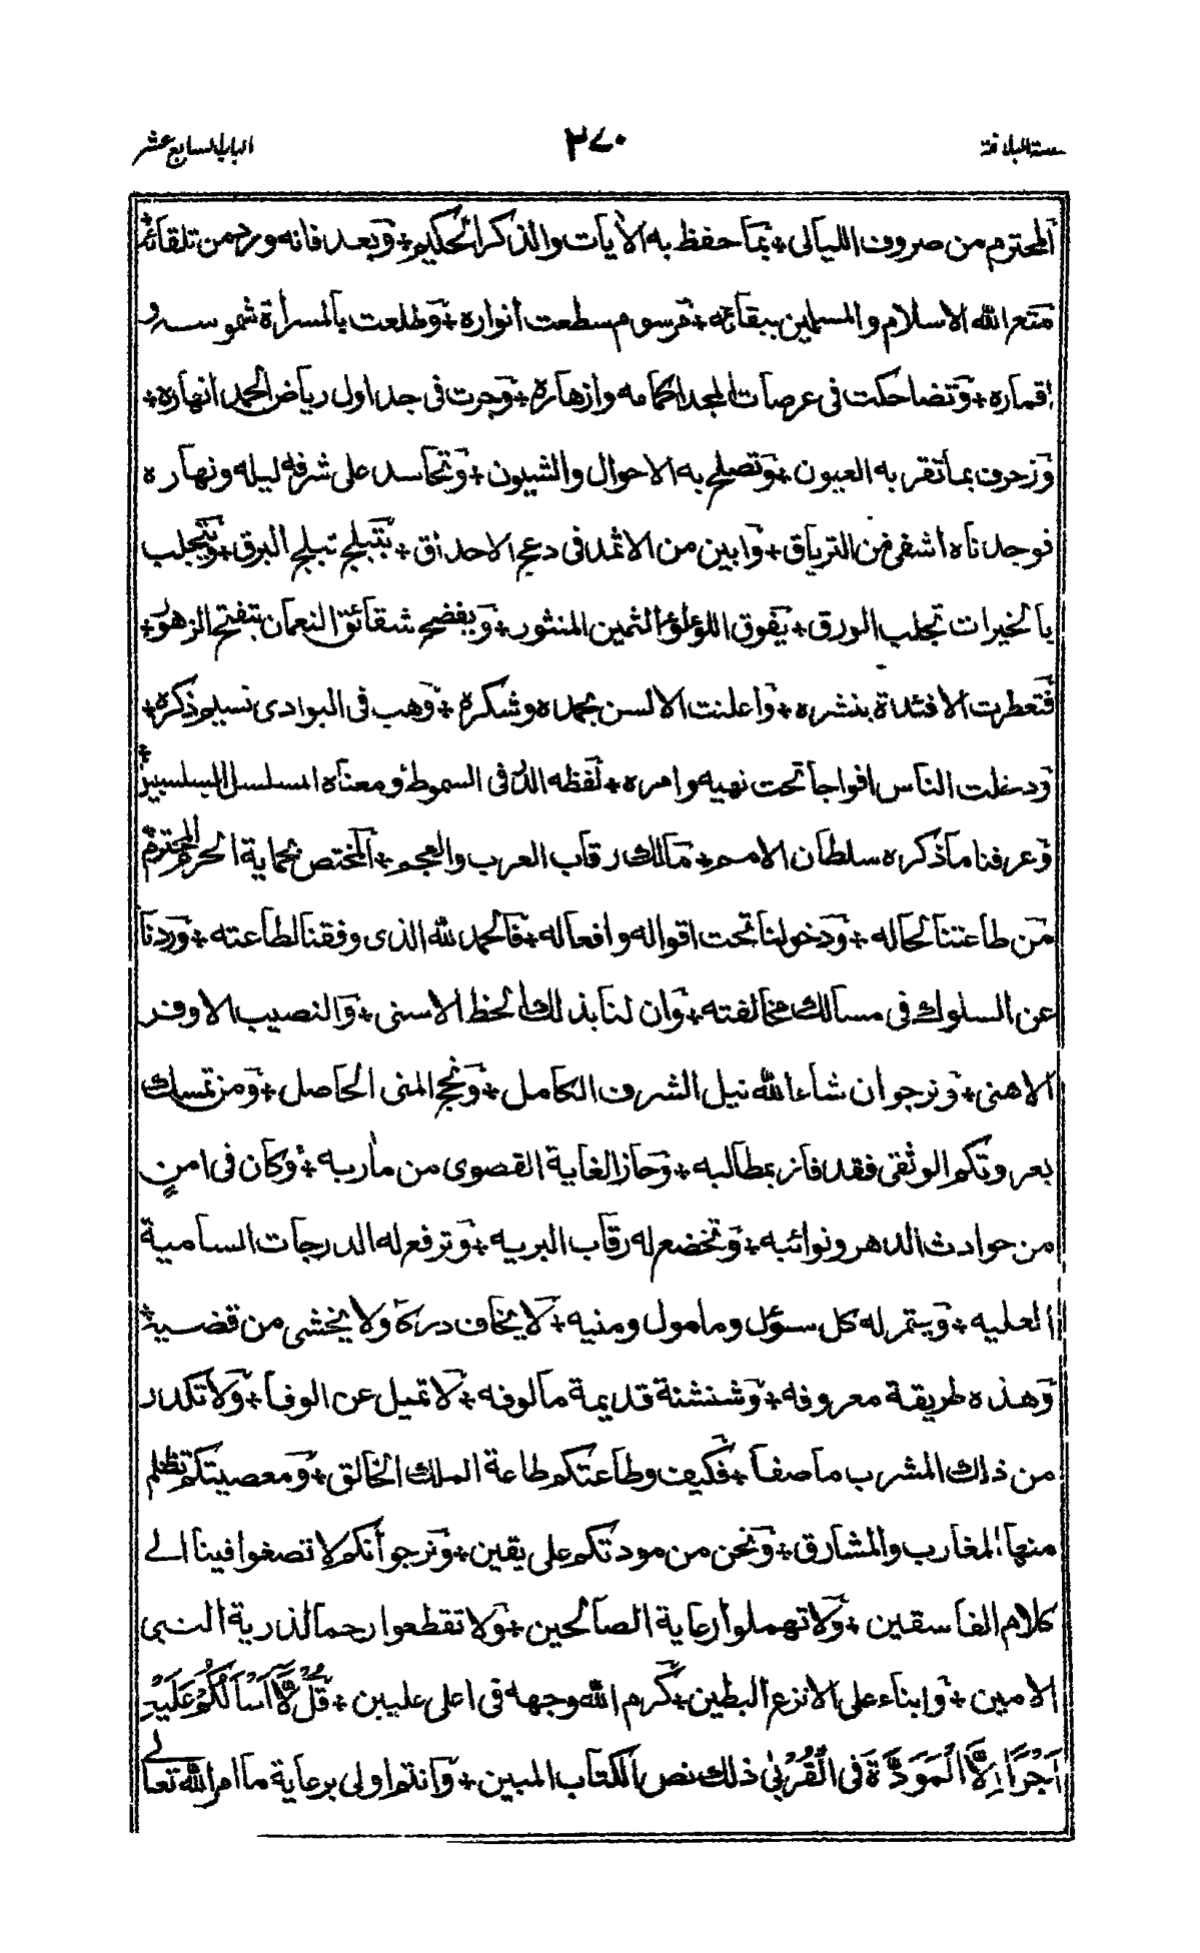 الباب السابع عشر
٣٧٠
المحترم من صروف الليالى + بما حفظ به الأيات والذكر الحكيم + وبعد فانه ورد من تلقائه +
متع الله الاسلام والمسلمين ببقائه + مرسوم سطعت أنواره + وطلعت بالمسرأة شموسه و
اقماره + وتضاحكت فى عرصات المجد اكمامه وازهاره + وجرت فى جداول رياض الحمد انهاره +
وزحرف بما تقر به العيون + وتصلح به الاحوال والشيون + وتحاسد على شرفه ليله ونهاره
فوجدناه اشفى من الترياق + وابين من الاثمد فى دعج الاحداق + يتبلج تبلج البرق + ويتجلب
بالخيرات تجلب الورق + يفوق اللؤلؤ الثمين المنثور + ويفضح شقائق النعمان بتفتح الزهور +
فتعطرت الافئدة بنشره + واعلنت الالسن بحمده وشكره + وهب فى البوادى نسيم ذكره +
ودخلت الناس افواجا تحت نهيه وامره + لفظه الدر فى السموط + ومعناه السلسل السلسبيل +
وعرفنا ما ذكره سلطان الامم + مالك رقاب العرب والعجم + المختص بحماية الحرم المحترم +
من طاعتنا لحاله + ودخولنا تحت اقواله وافعاله + فالحمد لله الذى وفقنا لطاعته + وردنا
عن السلوك فى مسالك مخالفته + وان لنا بذلك الحظ الاسنى + والنصيب الاوفر
الاهنى + ونرجو ان شاء الله نيل الشرف الكامل + ونجح المنى الحاصل + ومن تمسك
بعروتكم الوثقى فقد فاز بمطالبه + وحاز الغاية القصوى من مأربه + وكان فى امنٍ
من حوادث الدهر ونوائبه + وتخضع له رقاب البريه + وترفع له الدرجات السامية
العليه + ويتم له كل سؤل ومامول ومنيه + لا يخاف دركا ولا يخشى من قضية +
وهذه طريقة معروفه + وشنشنة قديمة مالوفه + لا تميل عن الوفا + ولا تكدر
من ذلك المشرب ما صفا + فكيف وطاعتكم طاعة الملك الخالق + ومعصيتكم تظلم
منها المغارب والمشارق + ونحن من مودتكم على يقين + ونرجو أنكم لا تصغوا فينا الى
كلام الفاسقين + ولا تهملوا رعاية الصالحين + ولا تقطعوا رحما لذرية النبى
الامين + وابناء على الانزع البطين + كرم الله وجهه فى اعلى عليين + قُلْ لَّا أَسْأَلُكُمْ عَلَيْهِ
أَجْرًا إِلَّا الْمَوَدَّةَ فِى الْقُرْبٰى ذلك نص الكتاب المبين + وانتم اولى برعاية ما امر الله تعالى